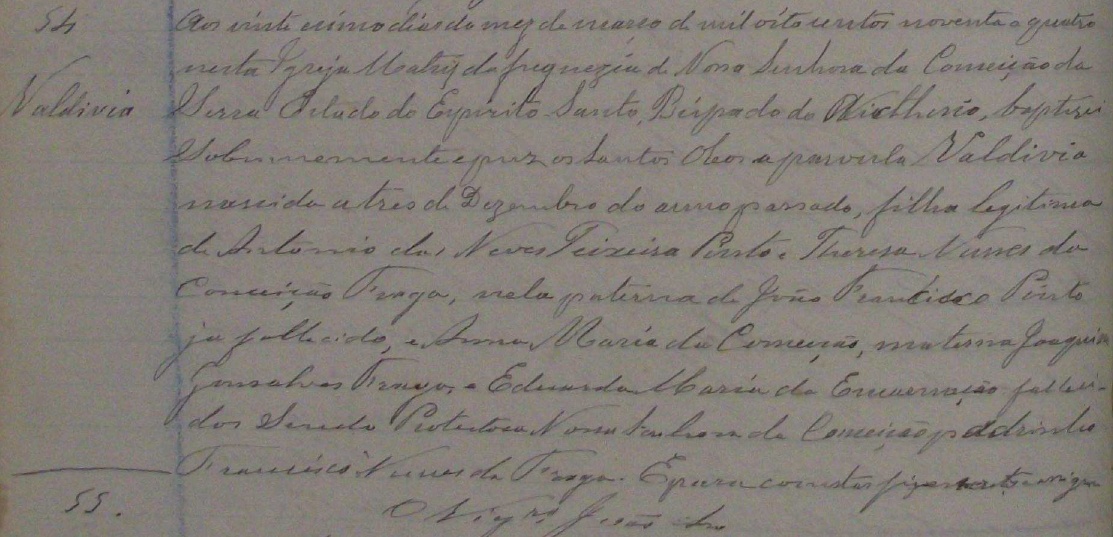 54
Aos vinte e cinco dias do mez de março d mil oito centos noventa e quatro
nesta Igreja Matriz da freguezia d Nossa Senhora da Conceição da
Valdivia
Serra Estado do Espirito Santo, Bispado de Nictheroy, baptizei
Solemnemente e puz os Santos Oleos a parvula Valdivia
nascida a tres de Dezembro do anno passado, filha legitima
de Antonio das Neves Teixeira Pinto e Theresa Nunes da
Conceição Fraga, neta paterna de João Francisco Pinto
ja fallecido, e Anna Maria da Conceição, materna Joaquim
Gonsalves Fraga, e Eduarda Maria da Encarnação falleci-
dos Sendo Protectora Nossa Senhora da Conceição padrinho
Francisco Nunes da Fraga. E para constar fiz este assento e assignei
55.
O Vigrº João